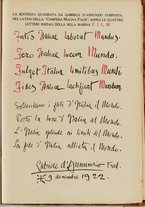 LA SENTENZA QUADRATA DA GABRIELE D'ANNUNZIO COMPOSTA,
NEL LATINO DELLA "COMPERA MAGNA PACIS", SOPRA LE QUATTRO
LETTERE INIZIALI DELLA SIGLA MARINA: F. I. L. M.
Fatis Italiae laborat Mundus.
Fero Italiae lucem Mundo.
Fulget Italia limitibus Mundi.
Fides Italiae lustrat Mundum.
il Mondo.
l'Italia al Mondo.
L'Italia splende ai confini del Mondo.
La fede d'Italia il Mondo.
Gabriele d'Annunzio
9 decembre 1922